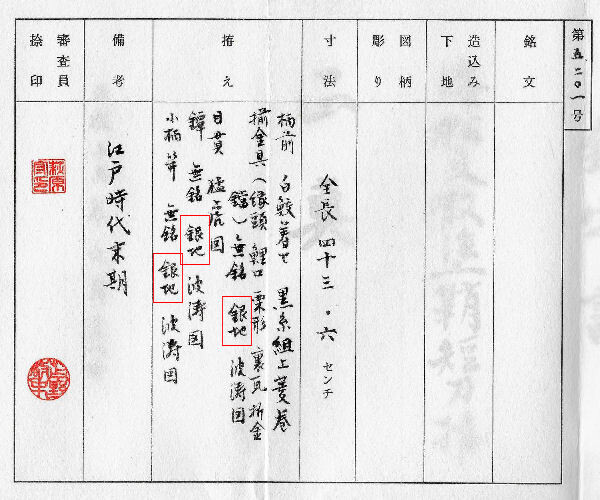 第五二〇一号
銘文
造込み
下地
図柄
彫り
寸法
全長 四十三・六 センチ
拵え
柄前 白鮫着せ 黒糸組上菱巻
揃金具(縁頭 鯉口 栗形 裏瓦 折金
鐺) 無銘 銀地 波涛図
目貫 猛虎図
鐔 無銘 銀地 波涛図
小柄笄 無銘 銀地 波涛図
備考
江戸時代末期
審査員
捺印